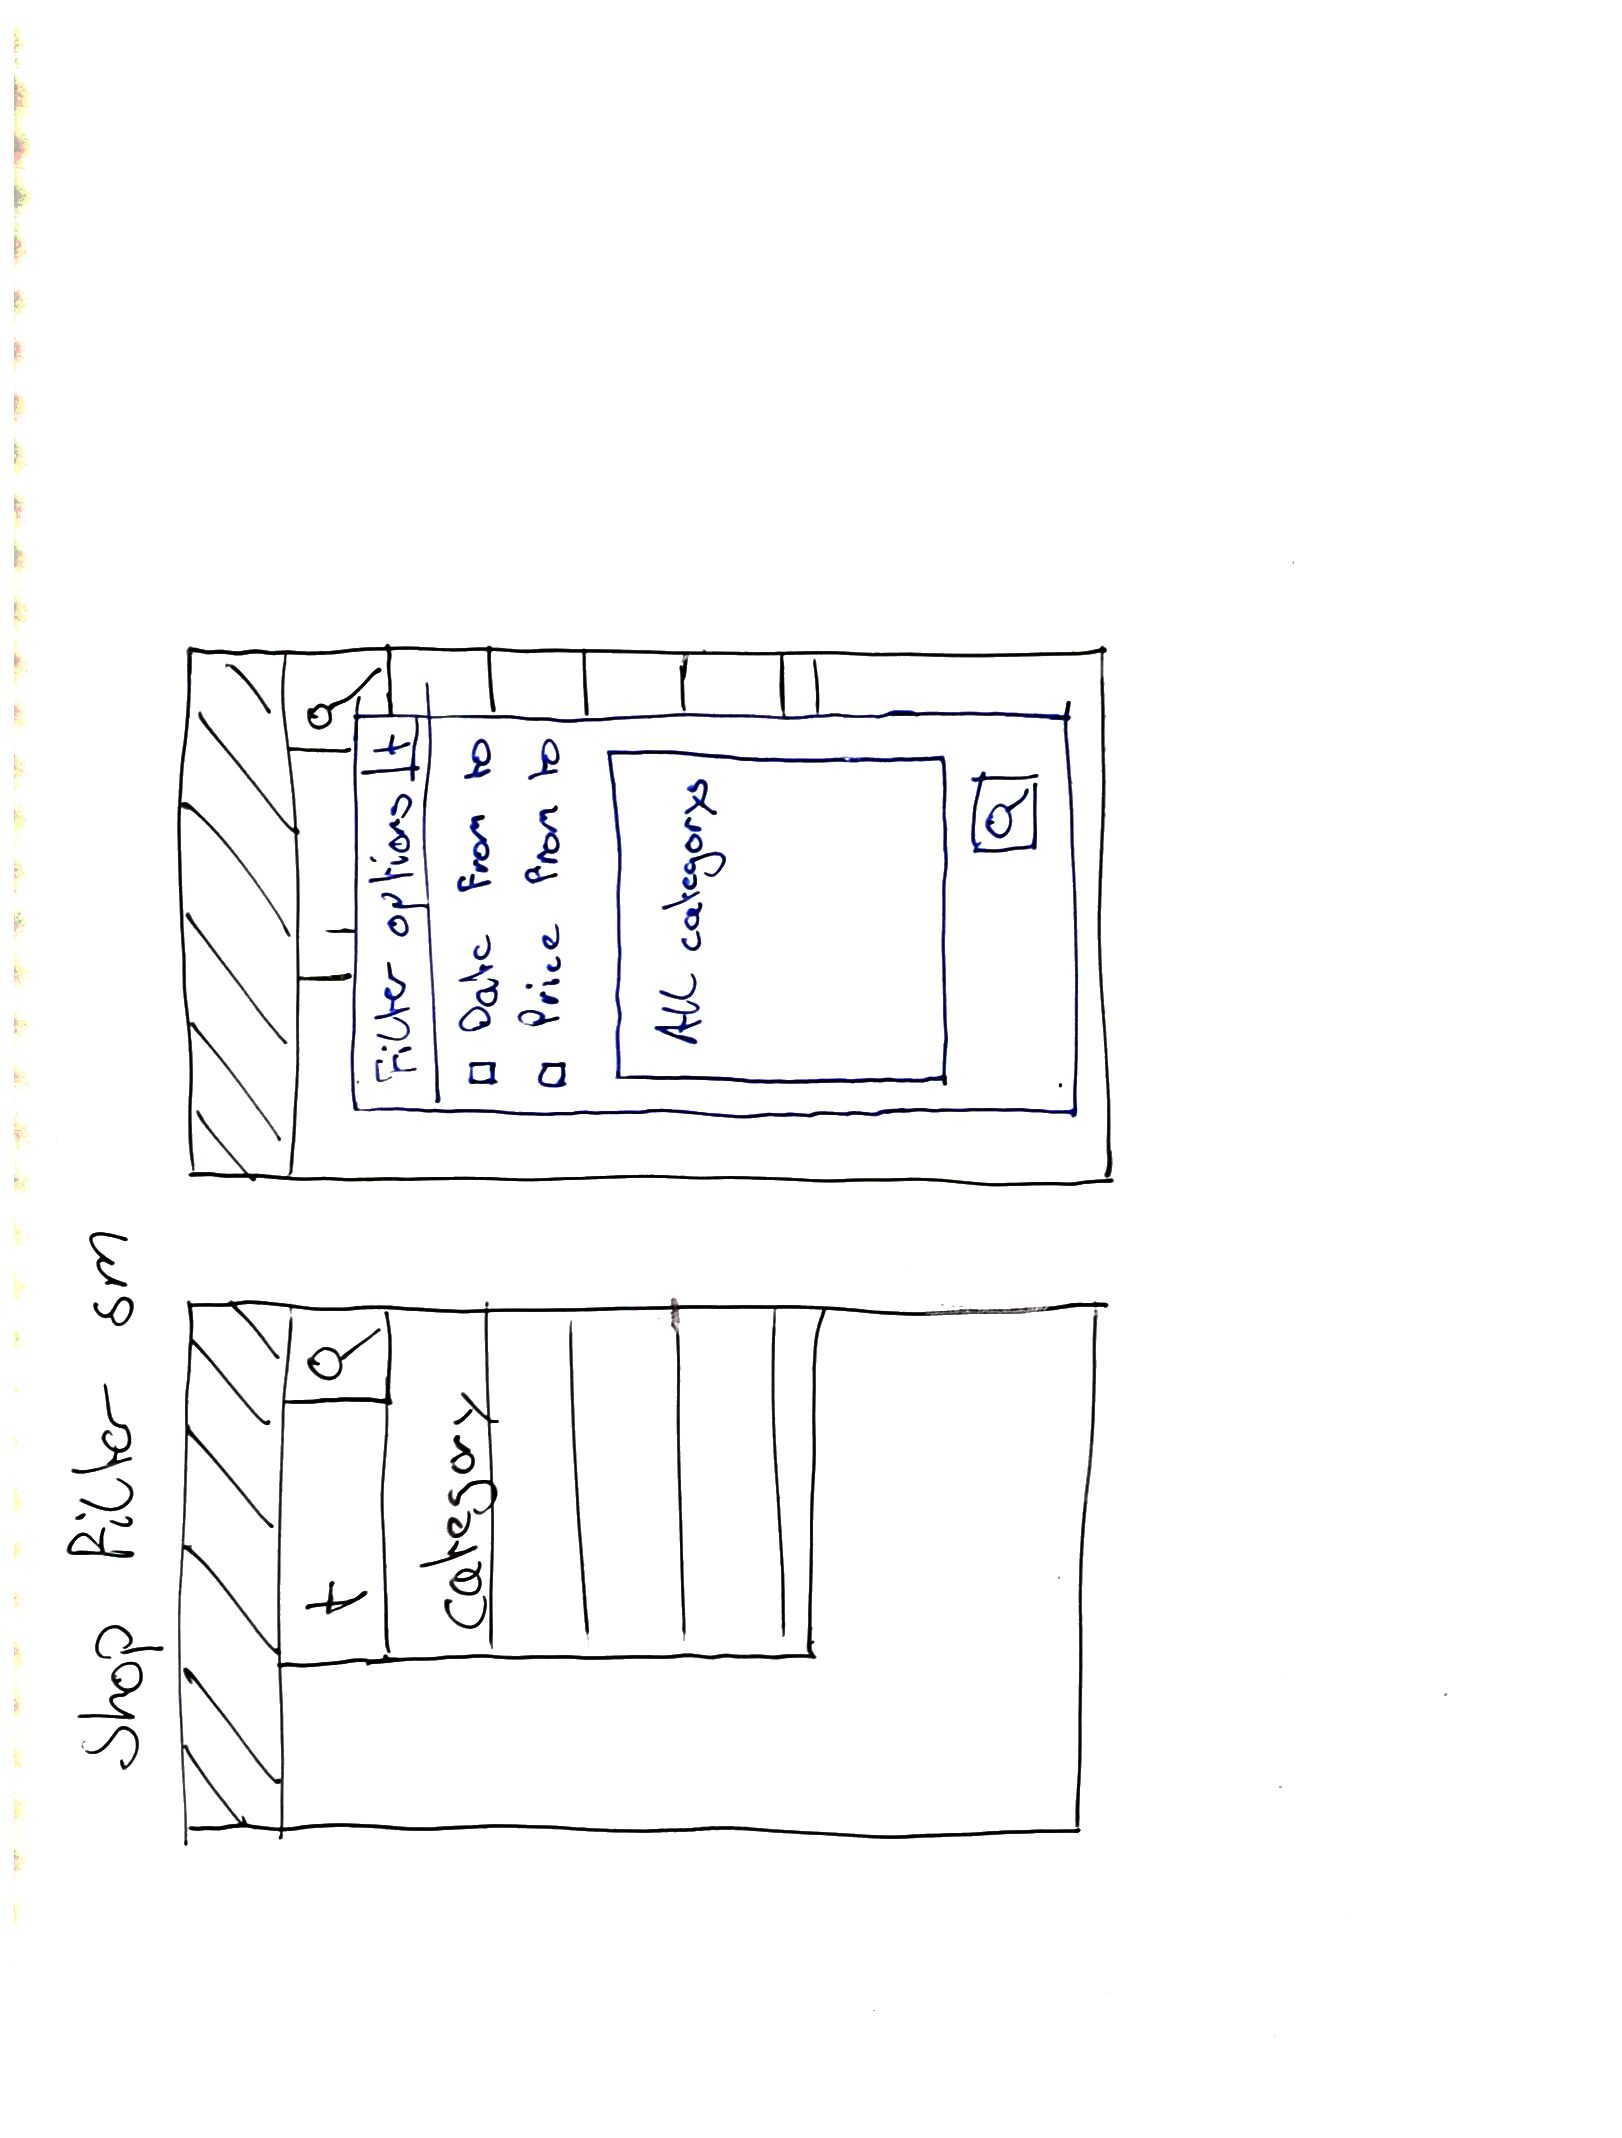 Shop Filter sm
+
category
Filter options +
Date from to
Price from to
All categorys